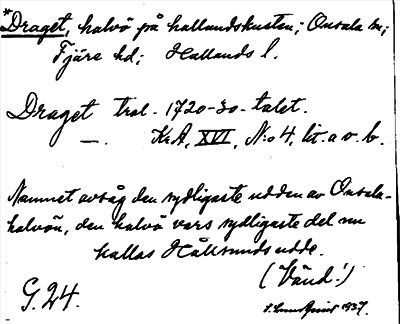 *Draget, halvö på hallandskusten; Onsala sn;
Fjäre hd; Hallands l.
Draget trol. 1720-30-talet.
— . Kr.A, XVI, N:o 4, lit. a o. b.
Namnet avsåg den sydligaste udden av Onsala-
halvön, den halvö vars sydligaste del nu
kallas Hållsundsudde.
(Vänd!)
G. 24.
1937.